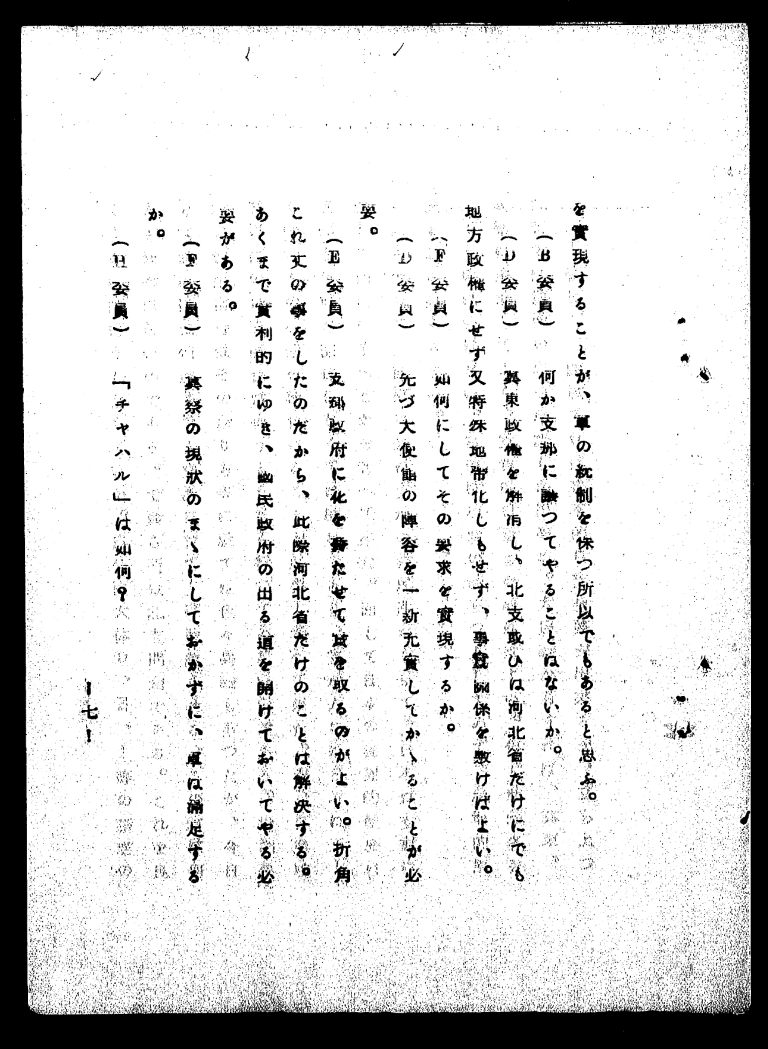 を實現することが、軍の統制を保つ所以でもあると思ふ。
(B委員) 何か支那に讓つてやることはないか。
(D委員) 冀東政權を解消し、北支或ひは河北省だけにでも
地方政權にせず又特殊地帶化しもせず、事實關係を敷けばよい。
(F委員) 如何にしてその要求を實現するか。
(D委員) 先づ大使館の陣容を一新充實してかゝることが必
要。
(E委員) 支那政府に花を持たせて實を取るのがよい。折角
これ丈の事をしたのだから、此際河北省だけのことは解決する。
あくまで實利的にゆき、國民政府の出る道を開けておいてやる必
要がある。
(F委員) 冀察の現狀のまゝにしておかずに、軍は滿足する
か。
(H委員) 「チヤハル」は如何?
ー七ー